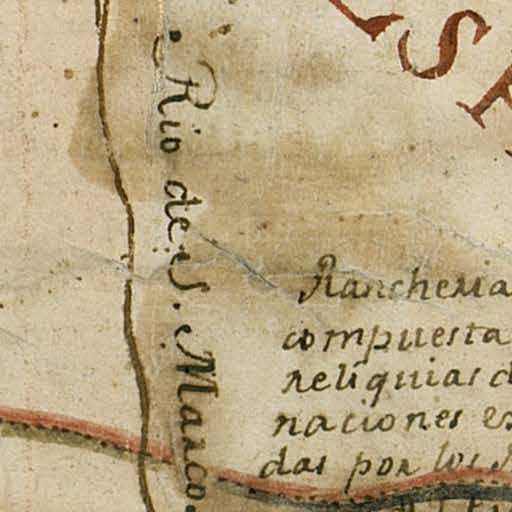 Rio de S. Marco.
Rancheria
compuesta
reliquias d
naciones es
das por los